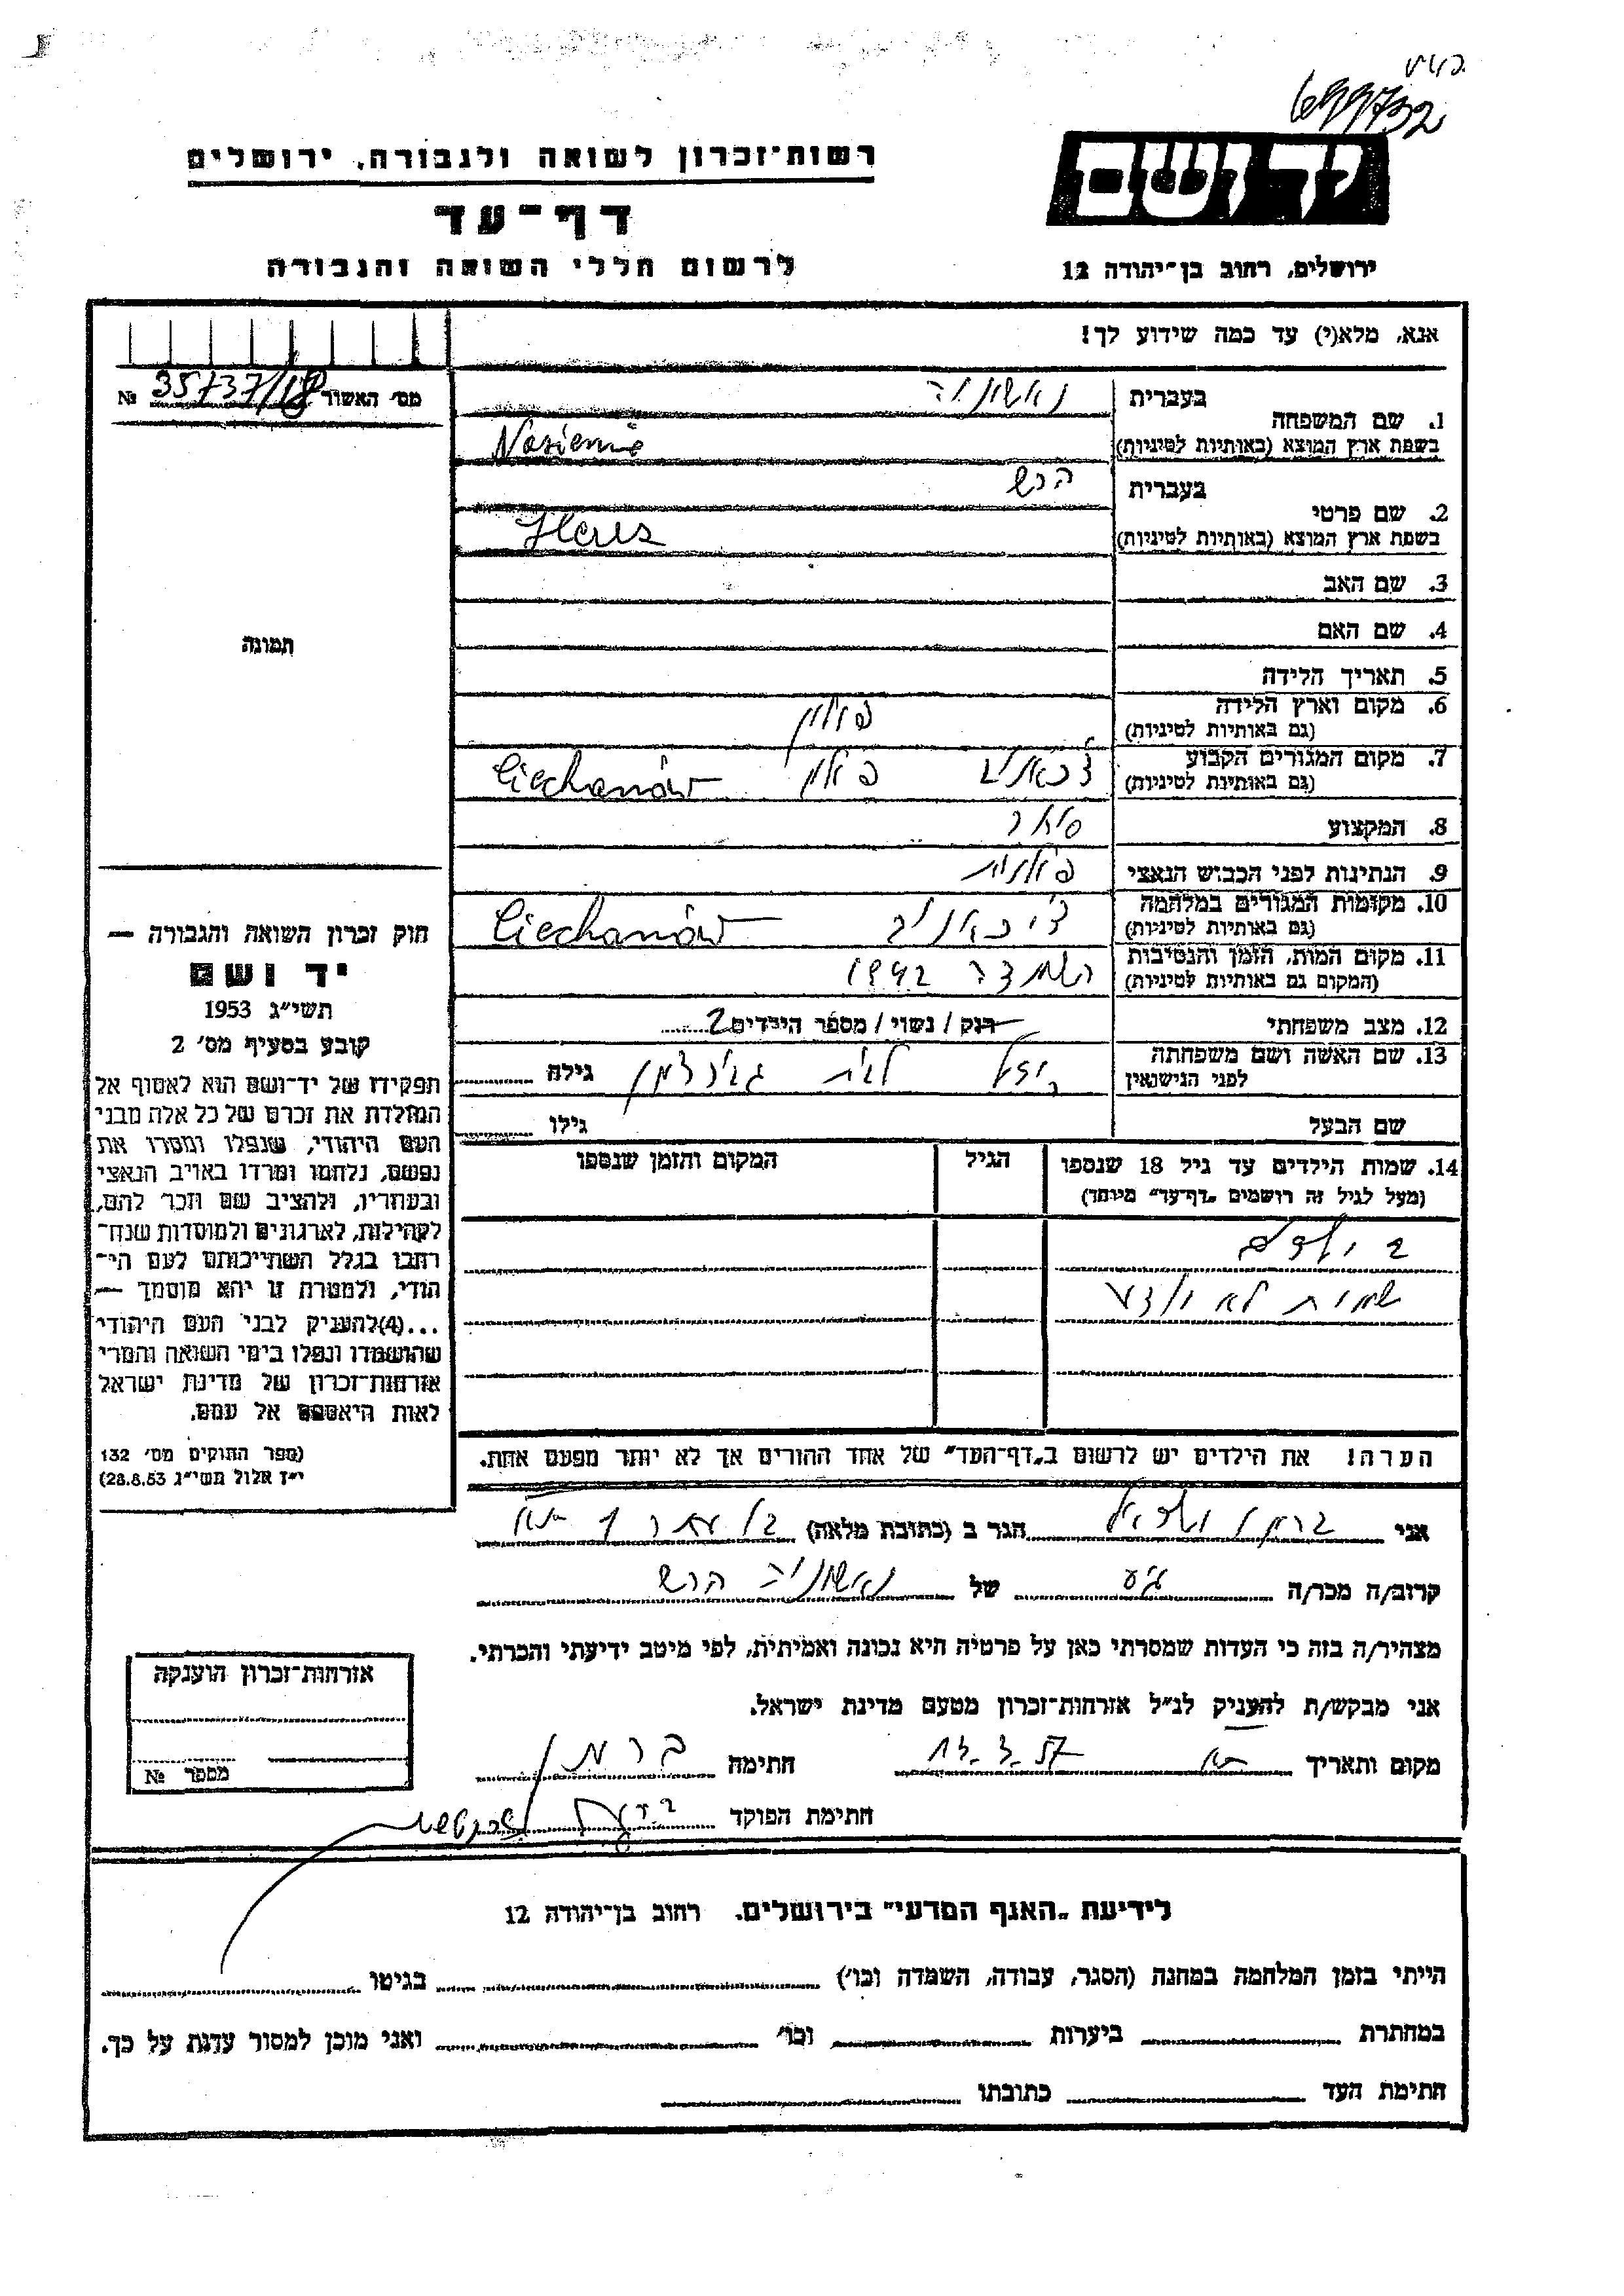 רשות־זכרון לשואה ולגבורה, ירושלים
דף־עד
לרשום חללי השואה והגבורה
יד ושם
ירושלים, רחוב בן־יהודה 12
אנא, מלא(י) עד כמה שידוע לך!
מס׳ האשור 35737/18 №
1. שם המשפחה
בעברית נאשוניה
בשפת ארץ המוצא (באותיות לטיניות)
2. שם פרטי
בעברית הרש
בשפת ארץ המוצא (באותיות לטיניות)
3. שם האב
4. שם האם
5. תאריך הלידה
6. מקום וארץ הלידה (גם באותיות לטיניות) פולין
7. מקום המגורים הקבוע (גם באותיות לטיניות) פולין Ciechanów
8. המקצוע סוחר
9. הנתינות לפני הכבוש הנאצי פולנית
10. מקומות המגורים במלחמה (גם באותיות לטיניות) Ciechanów
11. מקום המות, הזמן והנסיבות (המקום גם באותיות לטיניות) השמדה 1942
12. מצב משפחתי רוק / נשוי / מספר הילדים 2
13. שם האשה ושם משפחתה לפני הנישואין
לבית
גילה
שם הבעל
גילו
14. שמות הילדים עד גיל 18 שנספו
(מעל לגיל זה רושמים „דף־עד״ מיוחד)
הגיל
המקום והזמן שנספו
2 ילדים
שמות לא ידוע
הערה! את הילדים יש לרשום ב„דף־העד״ של אחד ההורים אך לא יותר מפעם אחת.
תמונה
חוק זכרון השואה והגבורה —
יד ושם
תשי״ג 1953
קובע בסעיף מס׳ 2
תפקידו של יד־ושם הוא לאסוף אל
המולדת את זכרם של כל אלה מבני
העם היהודי, שנפלו ומסרו את
נפשם, נלחמו ומרדו באויב הנאצי
ובעוזריו, ולהציב שם וזכר להם,
לקהילות, לארגונים ולמוסדות שנח־
רבו בגלל השתייכותם לעם הי־
הודי, ולמטרת זו יהא מוסמך —
...(4) להעניק לבני העם היהודי
שהושמדו ונפלו בימי השואה והמרי
אזרחות־זכרון של מדינת ישראל
לאות היאספם אל עמם.
(ספר החוקים מס׳ 132
י״ז אלול תשי״ג 28.8.53)
אני ברמן הגר ב (כתובת מלאה)
קרוב/ה מכר/ה של נאשוניה הרש
מצהיר/ה בזה כי העדות שמסרתי כאן על פרטיה היא נכונה ואמיתית, לפי מיטב ידיעתי והכרתי.
אני מבקש/ת להעניק לנ״ל אזרחות־זכרון מטעם מדינת ישראל.
מקום ותאריך חתימה ברמן
חתימת הפוקד
אזרחות־זכרון הוענקה
מספר №
לידיעת „האגף המדעי״ בירושלים. רחוב בן־יהודה 12
הייתי בזמן המלחמה במחנה (הסגר, עבודה, השמדה וכו׳) בגיטו
במחתרת ביערות וכו׳ ואני מוכן למסור עדות על כך.
חתימת העד כתובתו